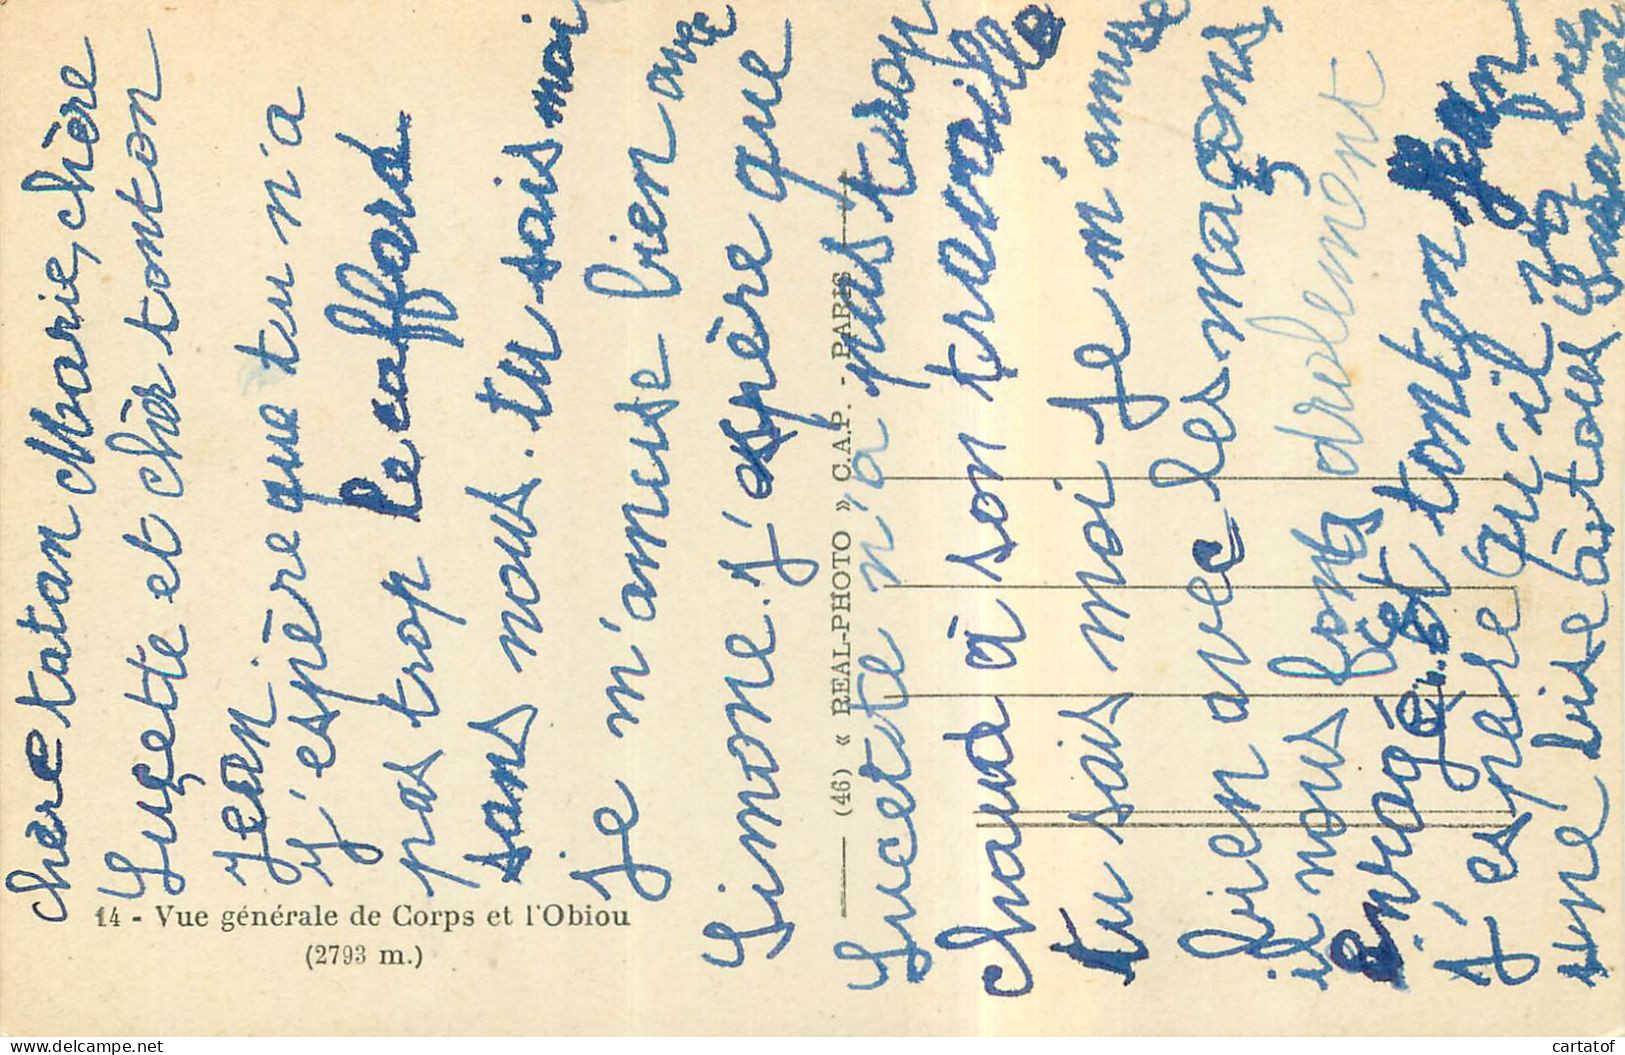 chère tatan Marie, chère
Luçette et chèr tonton
Jean
J'espère que tu n'a
pas trop le caffard
sans nous. tu sais moi
je m'amuse bien avec
Simone. J'espère que
Lucette n'a pas trop
chaud à son travaille
tu sais moi je m'amuse
bien avec les maçons
il nous font drolement
enragé. et tonton Jean
J'espère qu'il va bien
une bise à tous Susanne
14 - Vue générale de Corps et l'Obiou
(2793 m.)
(46) « REAL-PHOTO » C.A.P. - PARIS
delcampe.net
cartatof